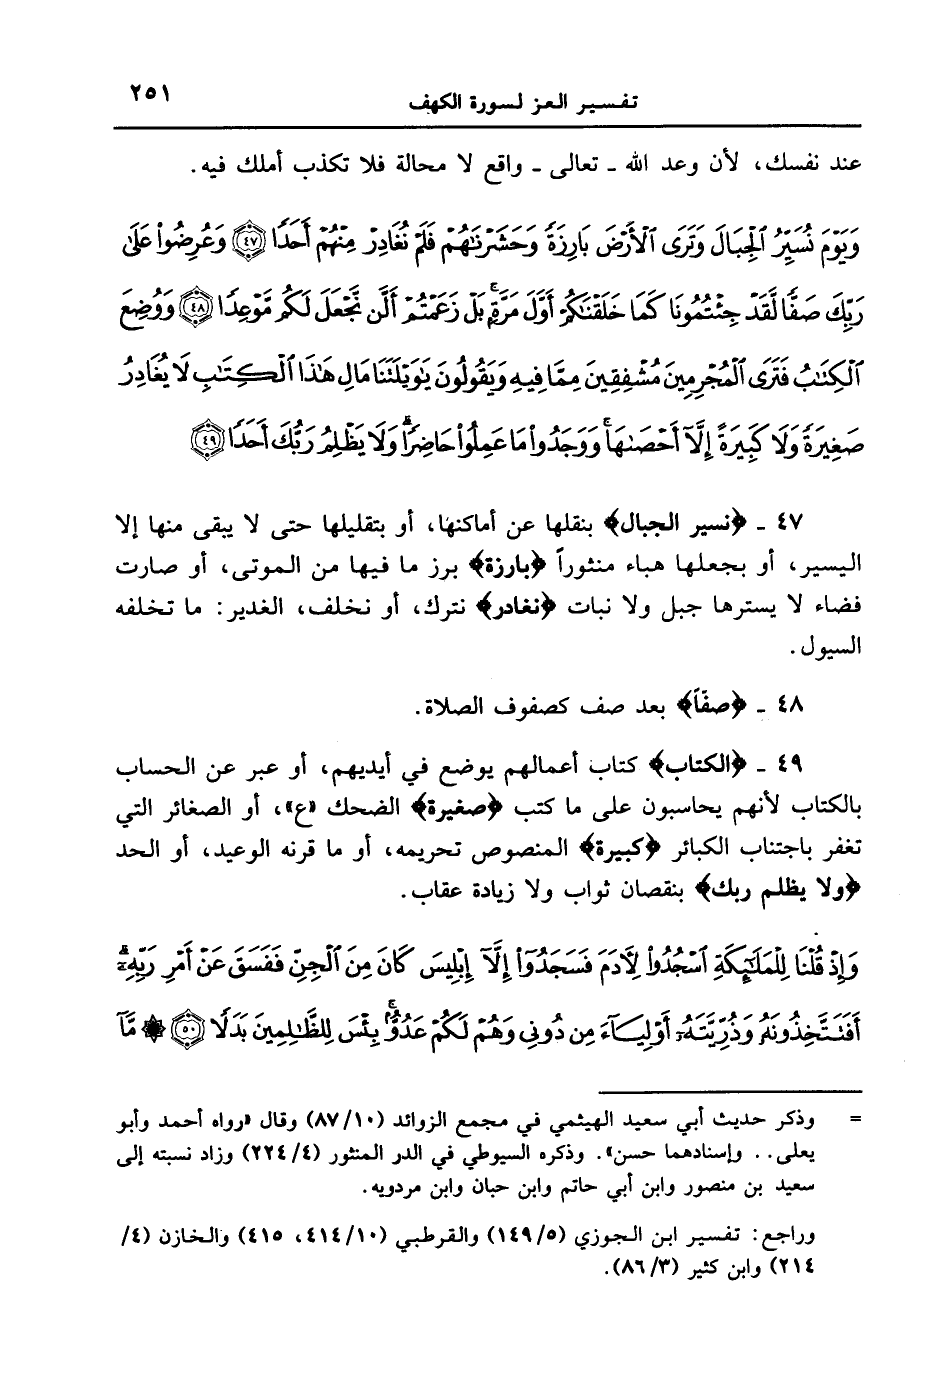 تفسير العز لسورة الكهف ٢٥١
عند نفسك، لأن وعد الله ـ تعالى ـ واقع لا محالة فلا تكذب أملك فيه.
وَيَوْمَ نُسَيِّرُ ٱلْجِبَالَ وَتَرَى ٱلْأَرْضَ بَارِزَةً وَحَشَرْنَٰهُمْ فَلَمْ نُغَادِرْ مِنْهُمْ أَحَدًا ٤٧ وَعُرِضُوا۟ عَلَىٰ
رَبِّكَ صَفًّا لَّقَدْ جِئْتُمُونَا كَمَا خَلَقْنَٰكُمْ أَوَّلَ مَرَّةٍۭ ۚ بَلْ زَعَمْتُمْ أَلَّن نَّجْعَلَ لَكُم مَّوْعِدًا ٤٨ وَوُضِعَ
ٱلْكِتَٰبُ فَتَرَى ٱلْمُجْرِمِينَ مُشْفِقِينَ مِمَّا فِيهِ وَيَقُولُونَ يَٰوَيْلَتَنَا مَالِ هَٰذَا ٱلْكِتَٰبِ لَا يُغَادِرُ
صَغِيرَةً وَلَا كَبِيرَةً إِلَّآ أَحْصَىٰهَا ۚ وَوَجَدُوا۟ مَا عَمِلُوا۟ حَاضِرًا ۗ وَلَا يَظْلِمُ رَبُّكَ أَحَدًا ٤٩
٤٧ ـ ﴿نسير الجبال﴾ بنقلها عن أماكنها، أو بتقليلها حتى لا يبقى منها إلا
اليسير، أو بجعلها هباء منثوراً ﴿بارزة﴾ برز ما فيها من الموتى، أو صارت
فضاء لا يسترها جبل ولا نبات ﴿نغادر﴾ نترك، أو نخلف، الغدير: ما تخلفه
السيول.
٤٨ ـ ﴿صفّاً﴾ بعد صف كصفوف الصلاة.
٤٩ ـ ﴿الكتاب﴾ كتاب أعمالهم يوضع في أيديهم، أو عبر عن الحساب
بالكتاب لأنهم يحاسبون على ما كتب ﴿صغيرة﴾ الضحك «ع»، أو الصغائر التي
تغفر باجتناب الكبائر ﴿كبيرة﴾ المنصوص تحريمه، أو ما قرنه الوعيد، أو الحد
﴿ولا يظلم ربك﴾ بنقصان ثواب ولا زيادة عقاب.
وَإِذْ قُلْنَا لِلْمَلَٰٓئِكَةِ ٱسْجُدُوا۟ لِـَٔادَمَ فَسَجَدُوٓا۟ إِلَّآ إِبْلِيسَ كَانَ مِنَ ٱلْجِنِّ فَفَسَقَ عَنْ أَمْرِ رَبِّهِۦٓ ۗ
أَفَتَتَّخِذُونَهُۥ وَذُرِّيَّتَهُۥٓ أَوْلِيَآءَ مِن دُونِى وَهُمْ لَكُمْ عَدُوٌّۢ ۚ بِئْسَ لِلظَّٰلِمِينَ بَدَلًا ٥٠ ۞ مَّآ
= وذكر حديث أبي سعيد الهيثمي في مجمع الزوائد (٨٧/١٠) وقال «رواه أحمد وأبو
يعلى.. وإسنادهما حسن». وذكره السيوطي في الدر المنثور (٢٢٤/٤) وزاد نسبته إلى
سعيد بن منصور وابن أبي حاتم وابن حبان وابن مردويه.
وراجع: تفسير ابن الجوزي (١٤٩/٥) والقرطبي (٤١٤/١٠، ٤١٥) والخازن (٤/
٢١٤) وابن كثير (٨٦/٣).